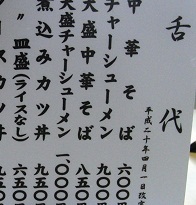 舌代
平成二十年四月一日改
中華そば 六〇〇
チャーシューメン 九〇〇
大盛中華そば
大盛チャーシューメン 一、〇〇〇
煮込みカツ丼 九五〇
〃 皿盛(ライスなし) 六五〇
ースカツ丼